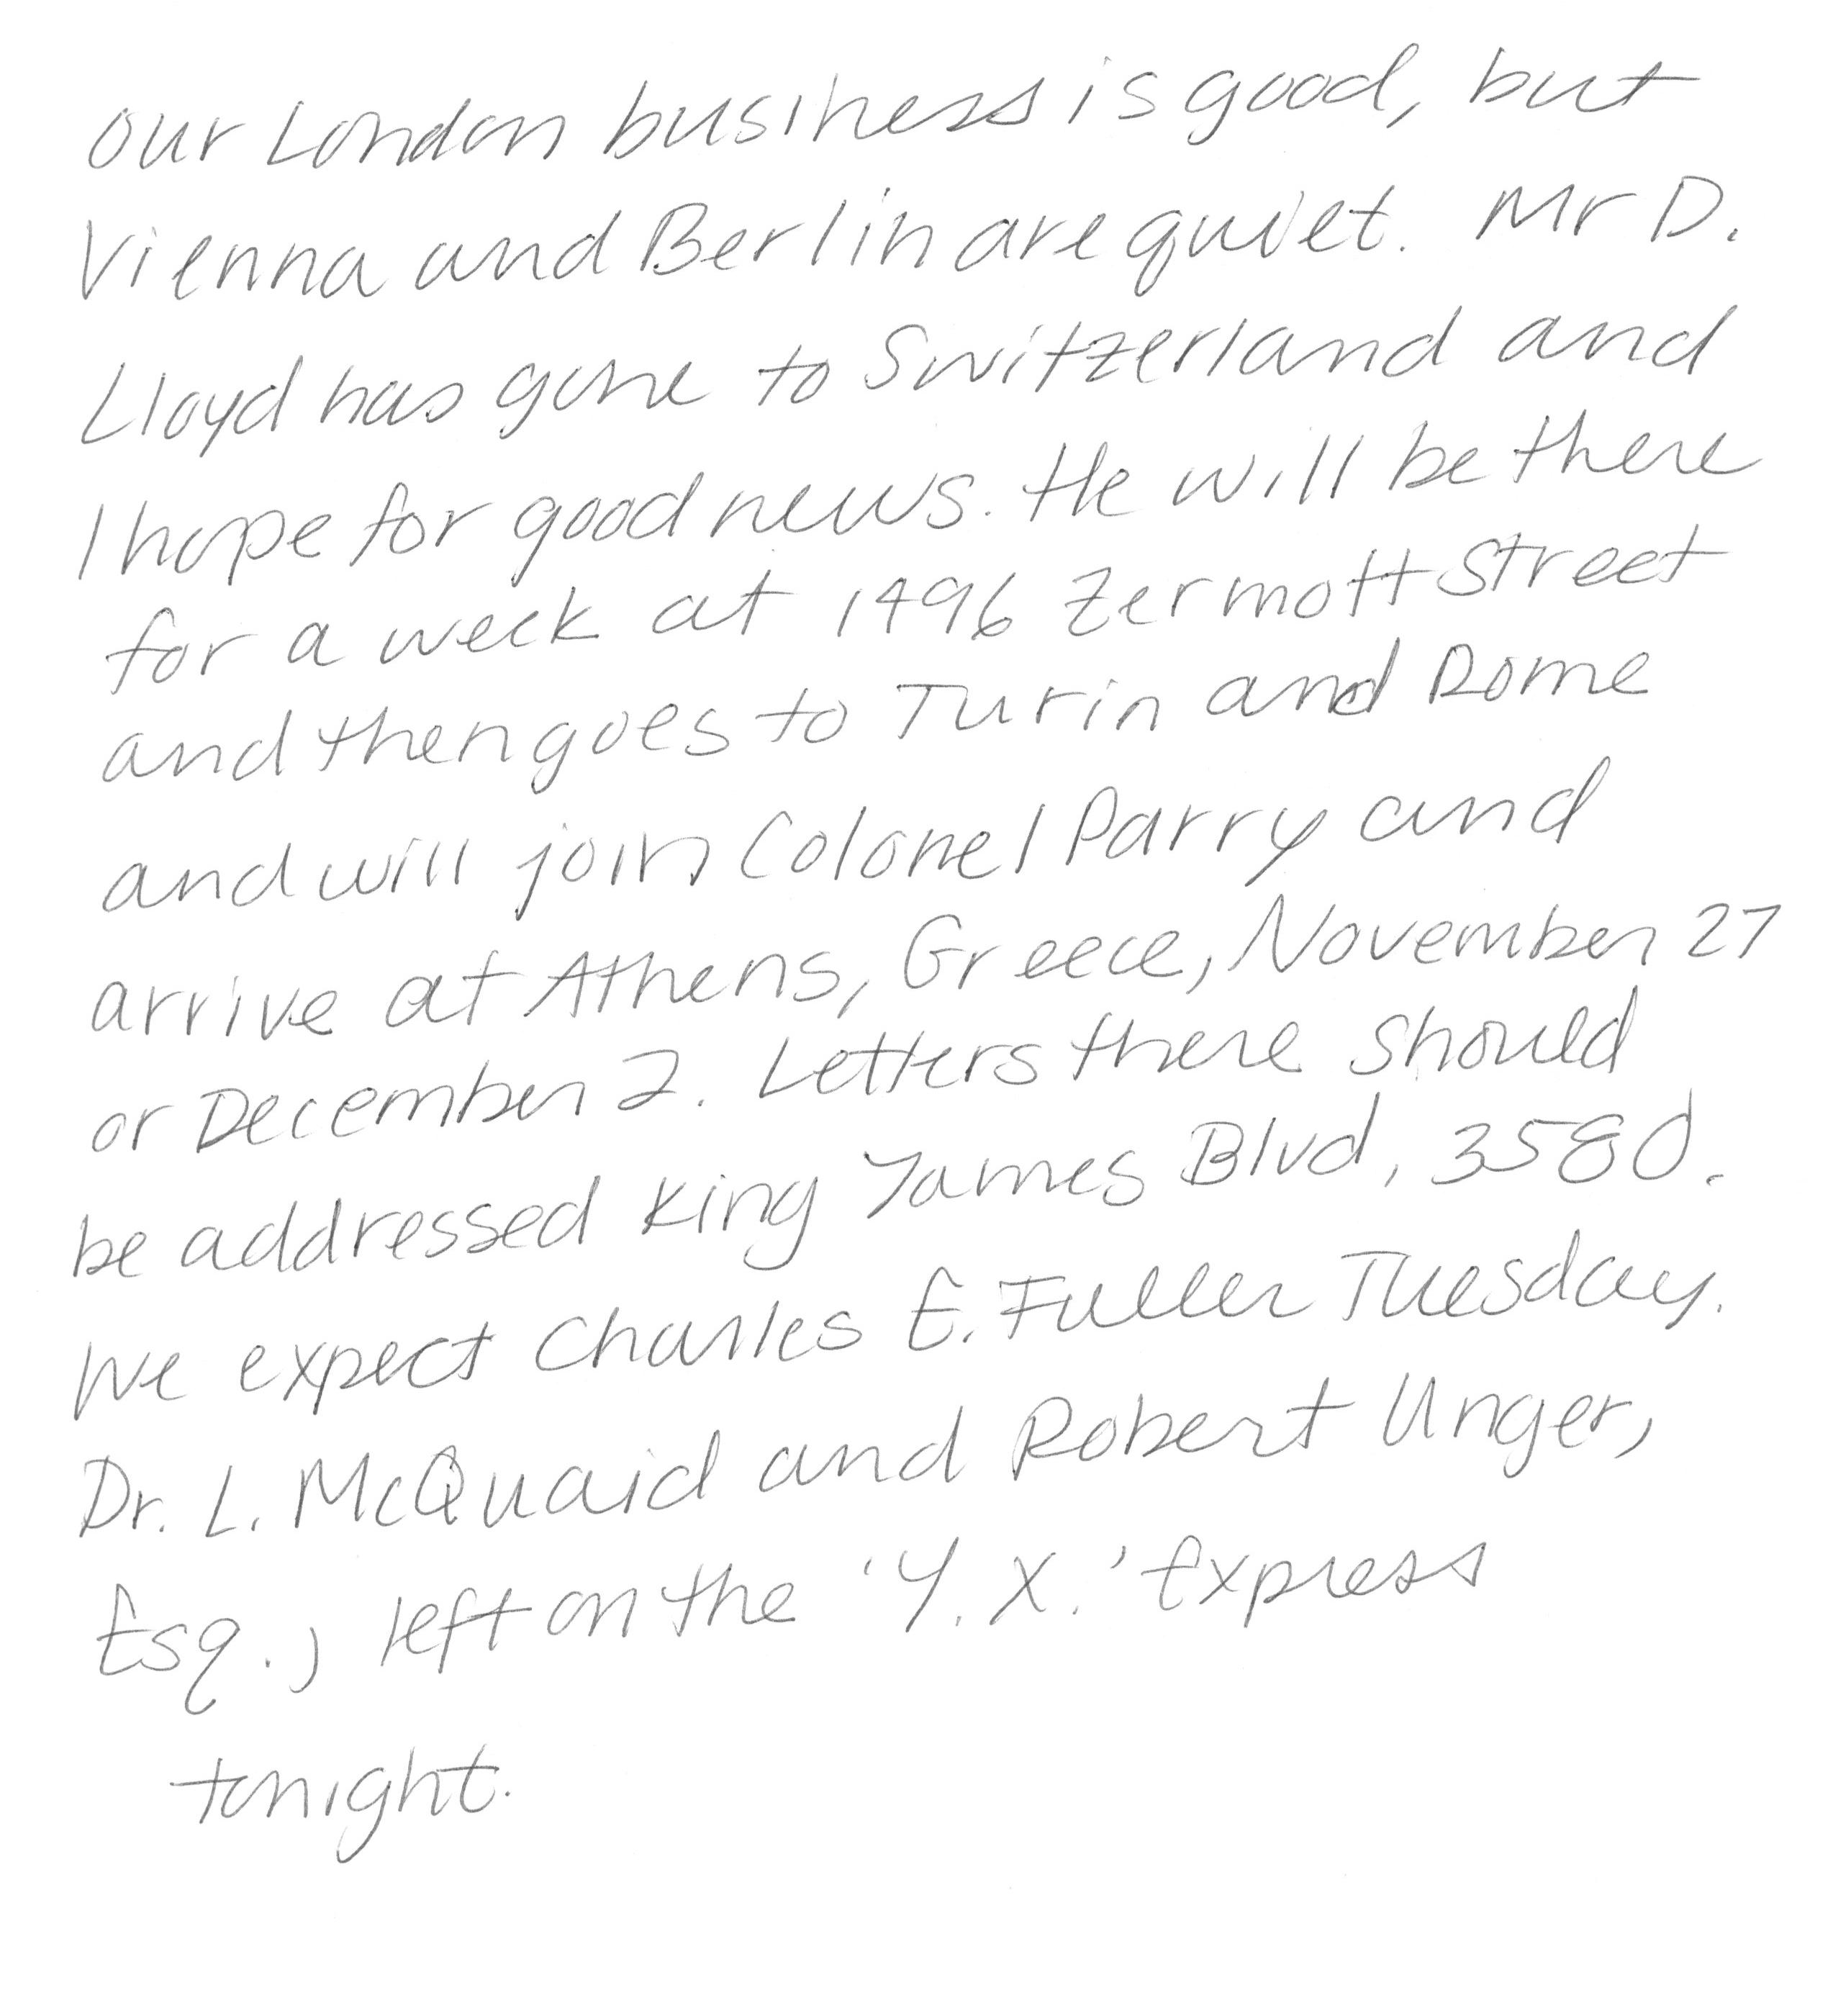 our London business is good, but
Vienna and Berlin are quiet. Mr D.
Lloyd has gone to Switzerland and
I hope for good news. He will be there
for a week at 1496 Zermott Street
and then goes to Turin and Rome
and will join Colonel Parry and
arrive at Athens, Greece, November 27
or December 2. Letters there should
be addressed King James Blvd, 3580.
We expect Charles E. Fuller Tuesday.
Dr. L. McQuaid and Robert Unger,
Esq., left on the 'Y. X.' Express
tonight.